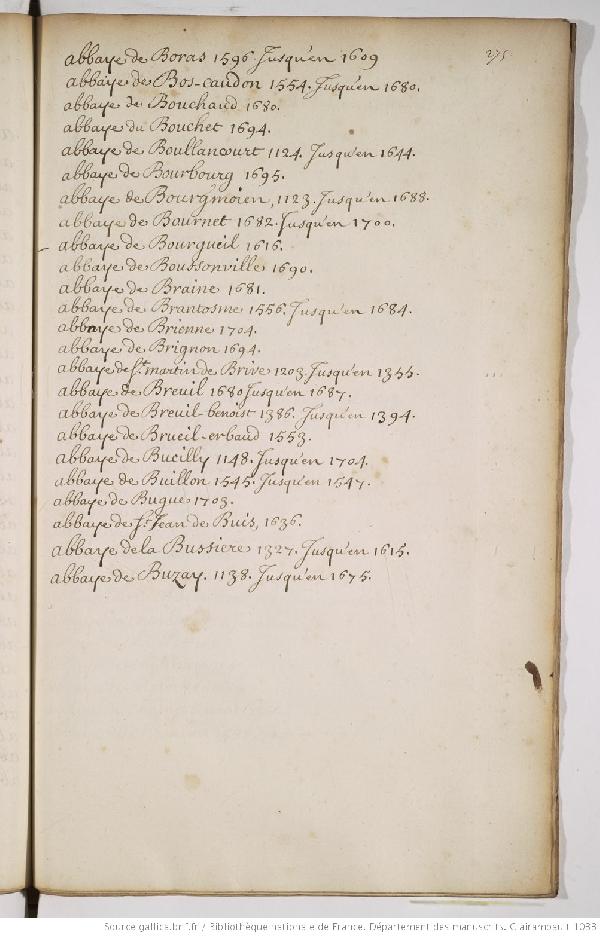 275.
abbaye de Boras 1596. Jusqu'en 1609
abbaye de Bos-caudon 1554. Jusqu'en 1680.
abbaye de Bouchaud 1680.
abbaye du Bouchet 1694.
abbaye de Boullancourt 1124. Jusqu'en 1644.
abbaye de Bourbourg 1695.
abbaye de Bourgmoien, 1123. Jusqu'en 1688.
abbaye de Bournet 1682. Jusqu'en 1700.
abbaye de Bourgueil 1616.
abbaye de Boussonville 1690.
abbaye de Braine 1681.
abbaye de Brantosme 1556. Jusqu'en 1684.
abbaye de Brienne 1704.
abbaye de Brignon 1694.
abbaye de St. martin de Brive 1203. Jusqu'en 1355.
abbaye de Breuil 1680 Jusqu'en 1687.
abbaye de Breuil-benoist 1386. Jusqu'en 1394.
abbaye de Brueil-erbaud 1553.
abbaye de Bucilly 1148. Jusqu'en 1704.
abbaye de Buillon 1545. Jusqu'en 1547.
abbaye de Bugue 1703.
abbaye de St. Jean de Buis, 1636.
abbaye de la Bussiere 1327. Jusqu'en 1615.
abbaye de Buzay. 1138. Jusqu'en 1675.
Source gallica.bnf.fr / Bibliothèque nationale de France. Département des manuscrits. Clairambault 1033